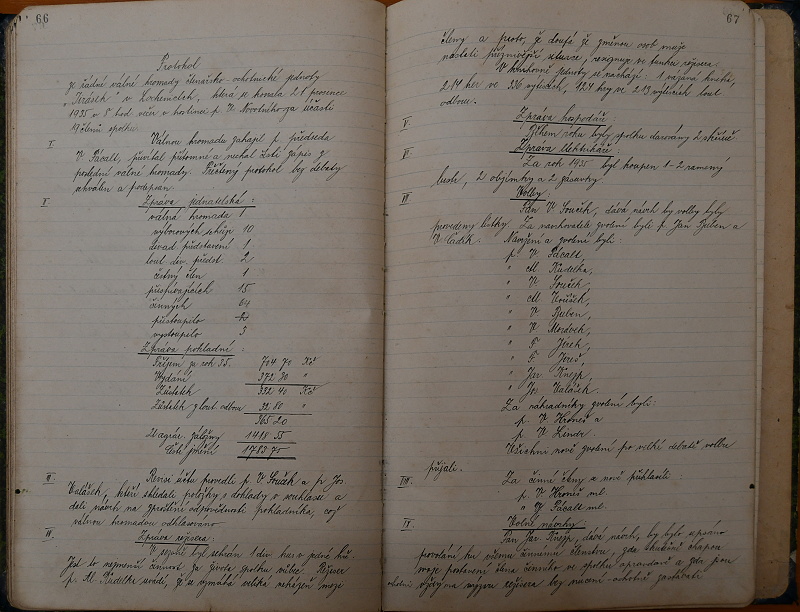 66
Protokol
z řádné valné hromady čtenářsko-ochotnické jednoty
"Jirásek" v, která se konala 28 prosince
1935 v 8 hod. večer v hostinci p. V. Novotného za účasti
19 členů spolku.
I. Valnou hromadu zahájil p. předseda
V. Pácalt, přivítal přítomné a nechal čísti zápis z
poslední valné hromady. Přečtený protokol bez debaty
schválen a podepsán.
II. Zpráva jednatelská:
valná hromada 1
výborových schůzí 10
divad. představení 1
lout. div. předst. 2
čestný člen 1
přispívajících 15
činných 64
přistoupilo
vystoupilo 3
Zpráva pokladní:
Příjem za rok 35. 704 70 Kč
Vydání 372 30 "
Zůstatek 332 40 Kč
Zůstatek z lout. odboru 32 80 "
365 20
U agrár. záložny 1418 55
Čisté jmění 1783 75
III. Revisi účtu provedli p. V. Souček a p. Jos.
Valášek, kteří shledali položky s doklady v souhlase a
dali návrh na zproštění odpovědnosti pokladníka, což
valnou hromadou odhlasováno.
IV. Zpráva režiséra:
V režii byl sehrán 1 div. kus v jedné hře.
Jest to nejmenší činnost za života spolku vůbec. Režiser
p. Al. Kudelka uvádí, že se vymlouvá veliká neházeň mezi
67
členy a proto, že doufá že změnou osob může
nastati příznivější situace, resignuje na funkci režisera.
V knihovně jednoty se nachází: 1 vázaná kniha,
214 her ve 336 výtiscích, 124 hry ve 213 výtiscích lout.
odboru.
V. Zpráva hospodáře
Během roku byly spolku darovány 2
VI. Zpráva elektrikáře:
Za rok 1935 byl koupen 1-2 ramenný
lustr, 2 objímky a 2 zásuvky.
VII. Volby.
Pan V. Souček, dává návrh by volby byly
provedeny lístky. Za navrhovatele zvoleni byli p. Jan Buben a
V. Ladík. Navrženi a zvoleni byli:
p. V. Pácalt,
" Al. Kudelka,
" V. Souček,
" Al. Koušek,
" V. Buben,
" V. Morávek,
" F. Jirek,
" F. Jireš,
" Jar. Knejp,
" Jos. Valášek.
Za náhradníky zvoleni byli:
p. V. Hroneš a
p. V. Lindr.
Všichni nově zvolení po velké debatě volbu
přijali.
VIII. Za činné členy se nově přihlásili:
p. V. Hroneš ml.
" V. Pácalt ml.
IX. Volné návrhy
Pan Jar. Knejp, dává návrh, by bylo upsáno
povolání ku všemu činnému členstvu, zda skutečně chápou
svoje postavení člena činného ve spolku opravdově a zda jsou
ochotni vždy na výzvu režisera bez nucení - ochotně zastávati